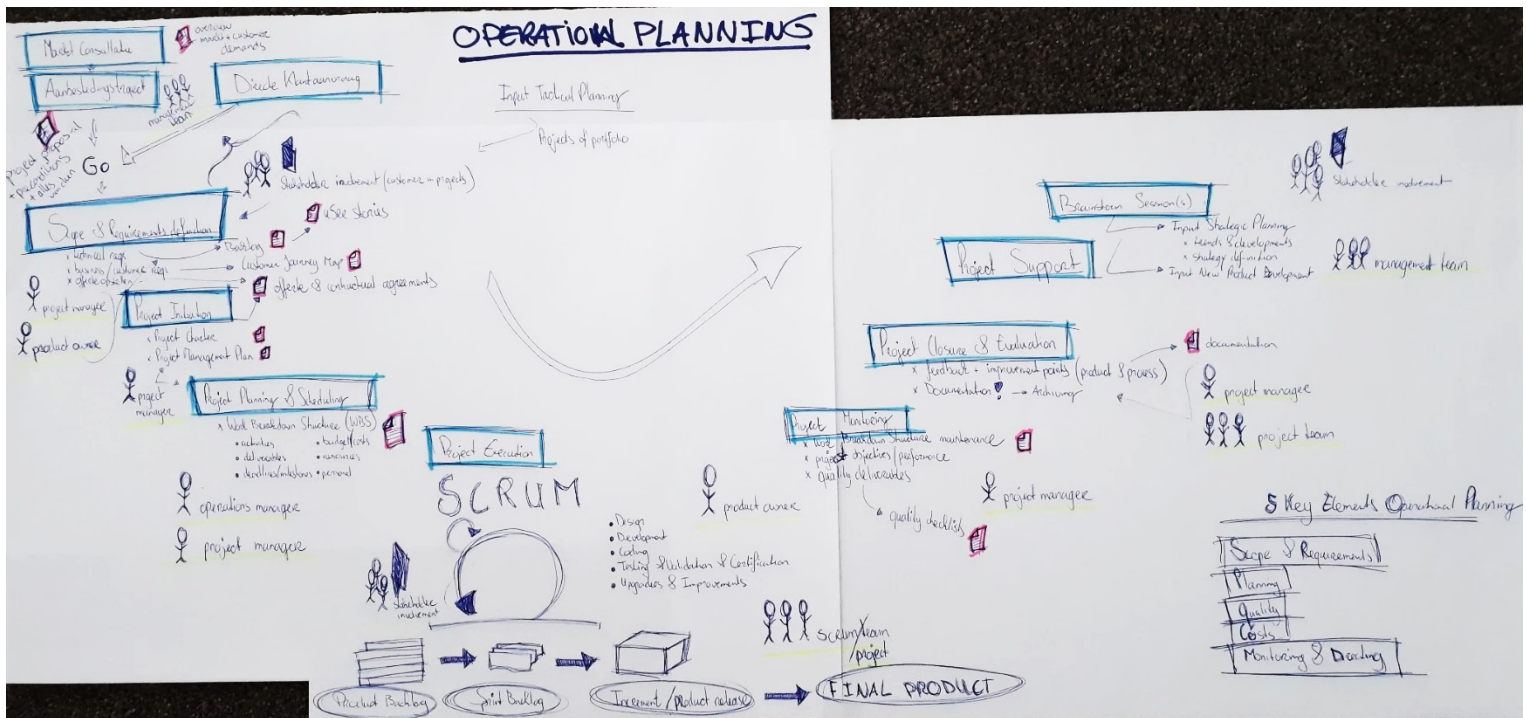 OPERATIONAL PLANNING
Markt Consultatie
overview
market + customer
demands
Aanbestedingstraject
management
team
Directe Klantaanvraag
Input Tactical Planning
Projects of portfolio
project proposal
+ preconditions
+ alles
Go
Stakeholder involvement (customer projects)
Scope & Requirements definition
x technical reqs
x business/customer reqs
Backlog
user stories
Customer Journey Map
offerte & contractual agreements
project manager
product owner
Project Initiation
x Project Charter
x Project Management Plan
project
manager
Project Planning & Scheduling
x Work Breakdown Structure (WBS)
• activities
• deliverables
• deadlines/milestones
• budget/costs
• resources
• personnel
operations manager
project manager
Project Execution
SCRUM
stakeholder
involvement
product owner
• Design
• Development
• Coding
• Testing & Validation & Certification
• Upgrades & Improvements
scrum team
/project
Product Backlog
Sprint Backlog
Increment / product release
FINAL PRODUCT
Project Monitoring
x Work Breakdown Structure maintenance
x project objectives/performance
x quality deliverables
quality checklists
project manager
Project Closure & Evaluation
x feedback + improvement points (product & process)
x Documentation! → Archiving
documentation
project manager
project team
Project Support
Brainstorm Session(s)
Input Strategic Planning
x trends & developments
x strategy definition
Input New Product Development
stakeholder involvement
management team
5 Key Elements Operational Planning
Scope & Requirements
Planning
Quality
Costs
Monitoring & Directing